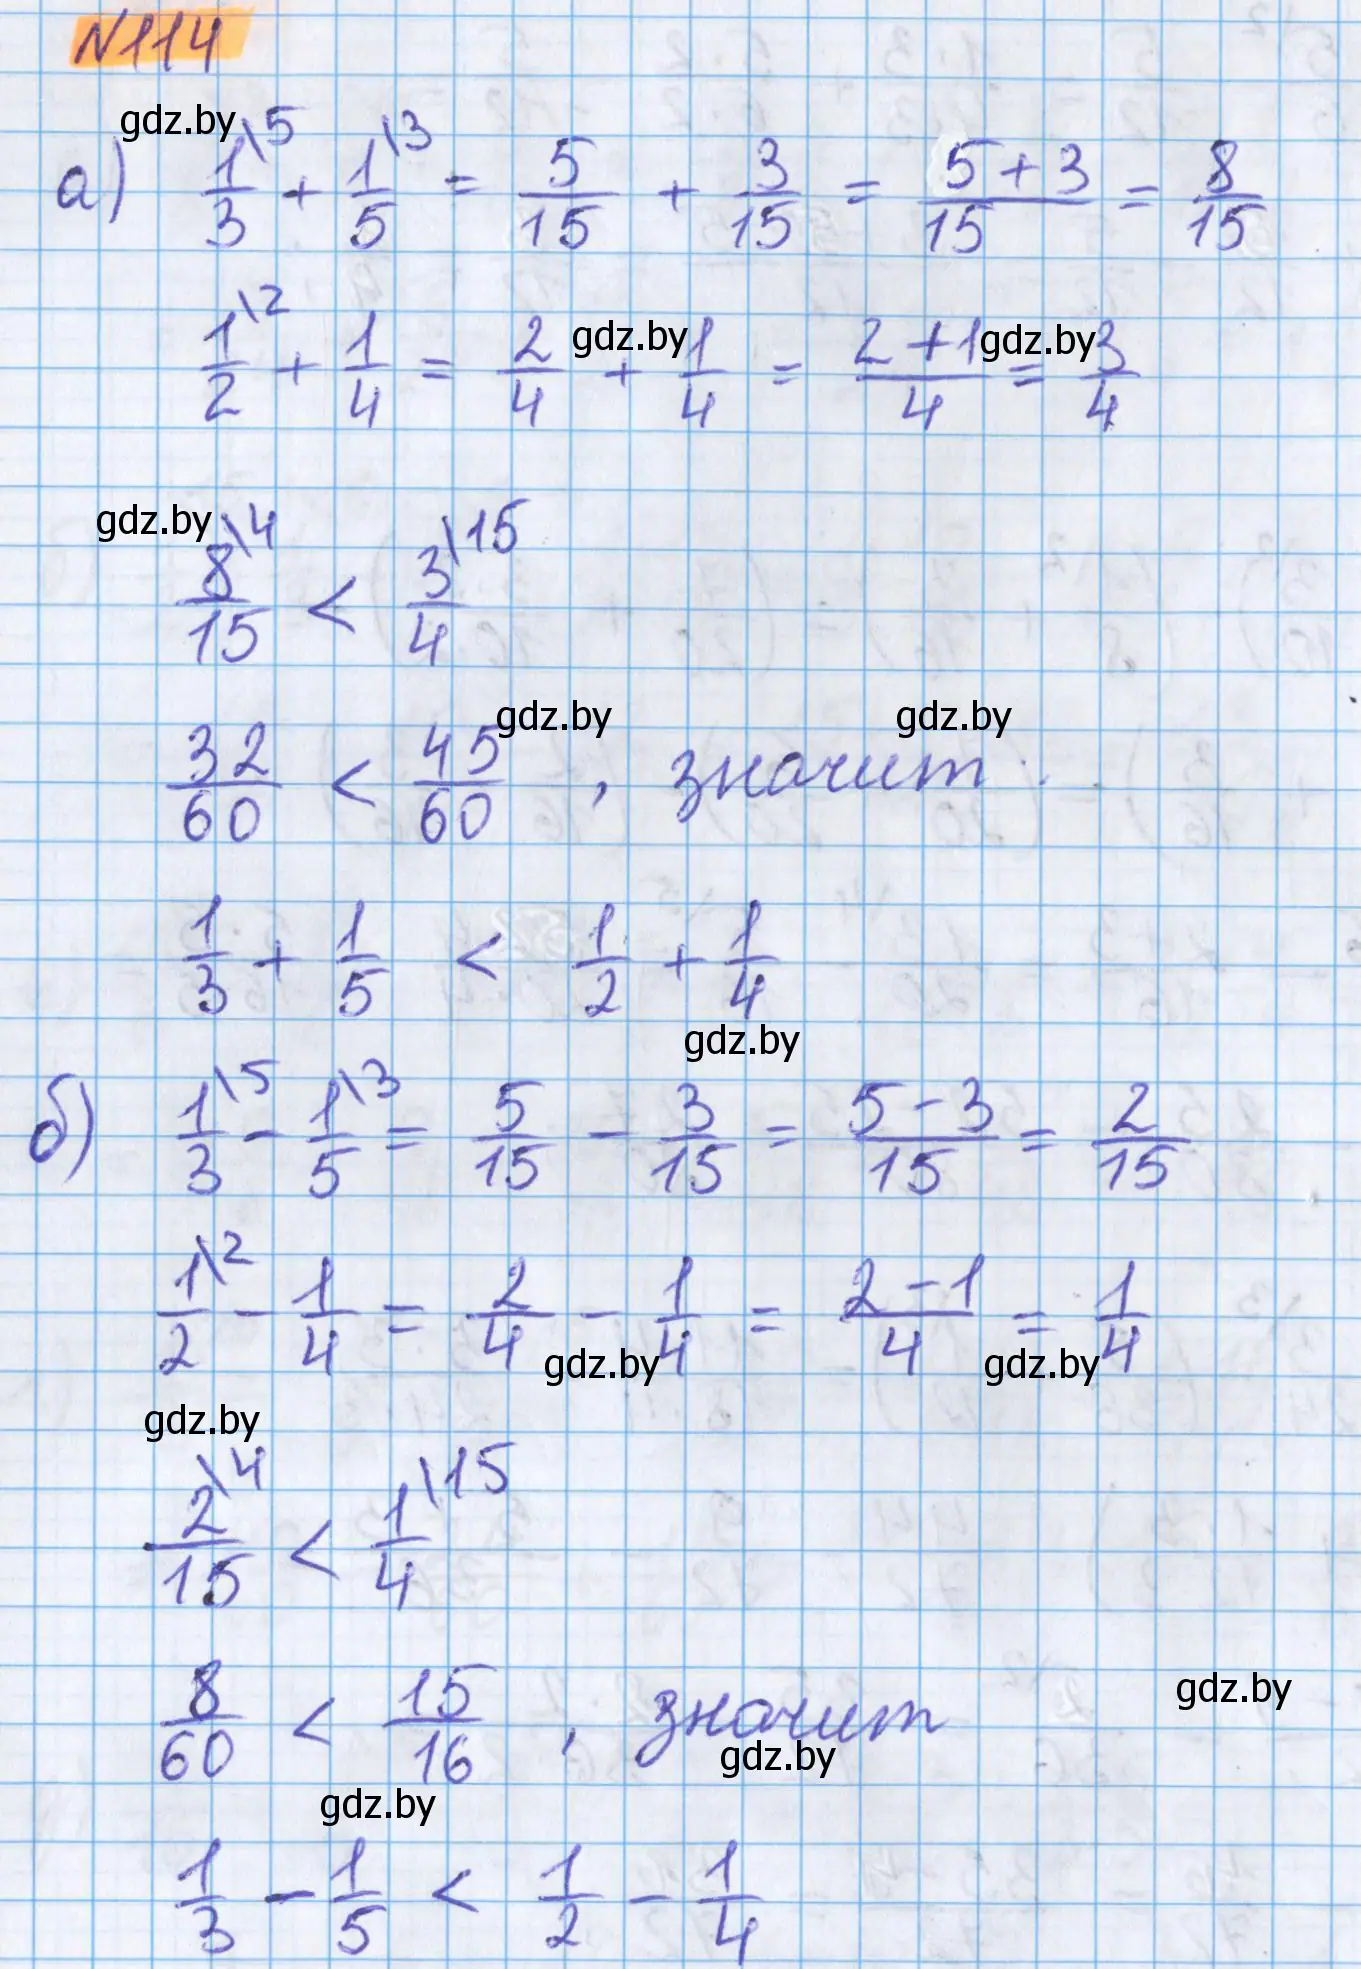 №114
gdz.by
а) 1/3\5 + 1/5\3 = 5/15 + 3/15 = (5+3)/15 = 8/15
1/2\2 + 1/4 = 2/4 + 1/4 = (2+1)/4 = 3/4
gdz.by gdz.by
gdz.by
8/15\4 < 3/4\15
gdz.by gdz.by
32/60 < 45/60 , значит
1/3 + 1/5 < 1/2 + 1/4
gdz.by
б) 1/3\5 - 1/5\3 = 5/15 - 3/15 = (5-3)/15 = 2/15
1/2\2 - 1/4 = 2/4 - 1/4 = (2-1)/4 = 1/4
gdz.by gdz.by
gdz.by
2/15\4 < 1/4\15
gdz.by
8/60 < 15/16 , значит
gdz.by
gdz.by
1/3 - 1/5 < 1/2 - 1/4